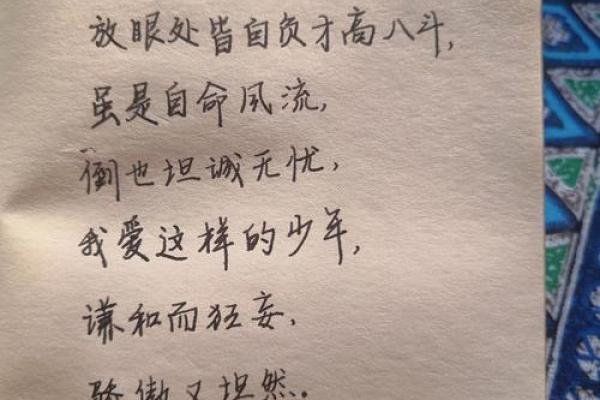 放眼处皆自负才高八斗,
虽是自命风流,
倒也坦诚无忧,
我爱这样的少年,
谦和而狂妄,
骄傲又坦然。